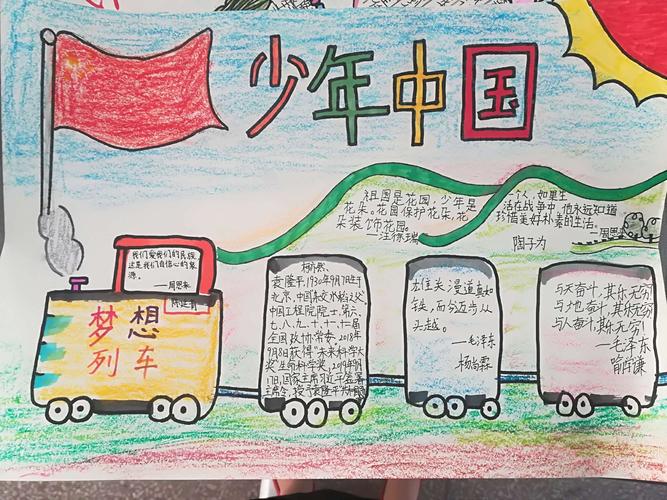 少年中国
祖国是花园，少年是
花朵。花园保护花朵，花
朵装饰花园。
一个人，如果生
活在战争中，他永远知道
珍惜美好朴素的生活。
陶子为
我们爱我们的民族，
这是我们自信心的泉
源。
——周恩来
梦想
列车
袁隆平，1930年9月7日生于
北京，中国杂交水稻之父
中国工程院院士，第六、
七、八、九、十、十一、十二届
全国政协常委，2018年
9月8日获得“未来科学大
奖”生命科学奖，2019年9月
17日，国家主席习近平签署
主席令，授予袁隆平共和国
雄关漫道真如
铁，而今迈步从
头越。
——毛泽东
与天奋斗，其乐无穷
与地奋斗，其乐无穷
与人奋斗，其乐无穷！
——毛泽东